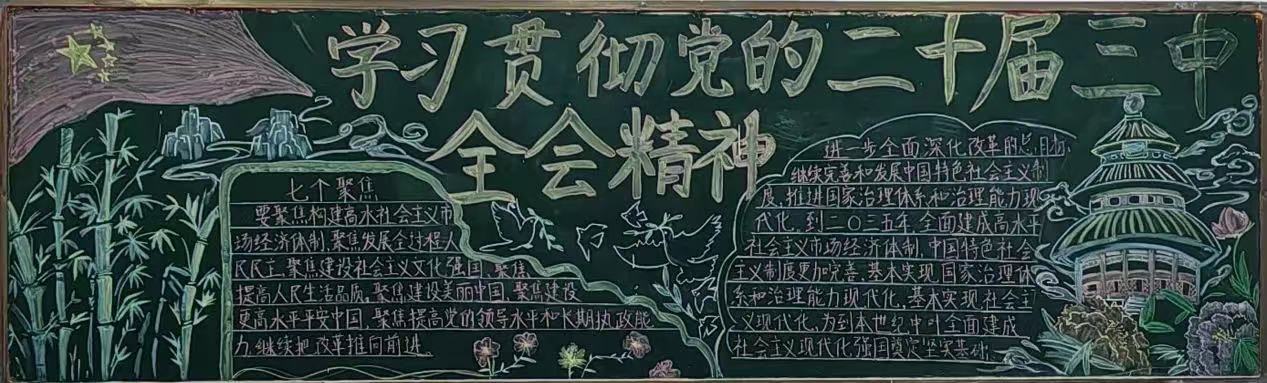 学习贯彻党的二十届三中
全会精神
七个聚焦
要聚焦构建高水社会主义市
场经济体制,聚焦发展全过程人
民民主,聚焦建设社会主义文化强国,聚焦
提高人民生活品质,聚焦建设美丽中国,聚焦建设
更高水平平安中国,聚焦提高党的领导水平和长期执政能
力,继续把改革推向前进。
进一步全面深化改革的总目标
继续完善和发展中国特色社会主义制
度,推进国家治理体系和治理能力现
代化,到二〇三五年,全面建成高水平
社会主义市场经济体制,中国特色社会
主义制度更加完善,基本实现国家治理体
系和治理能力现代化,基本实现社会主
义现代化,为到本世纪中叶全面建成
社会主义现代化强国奠定坚实基础。